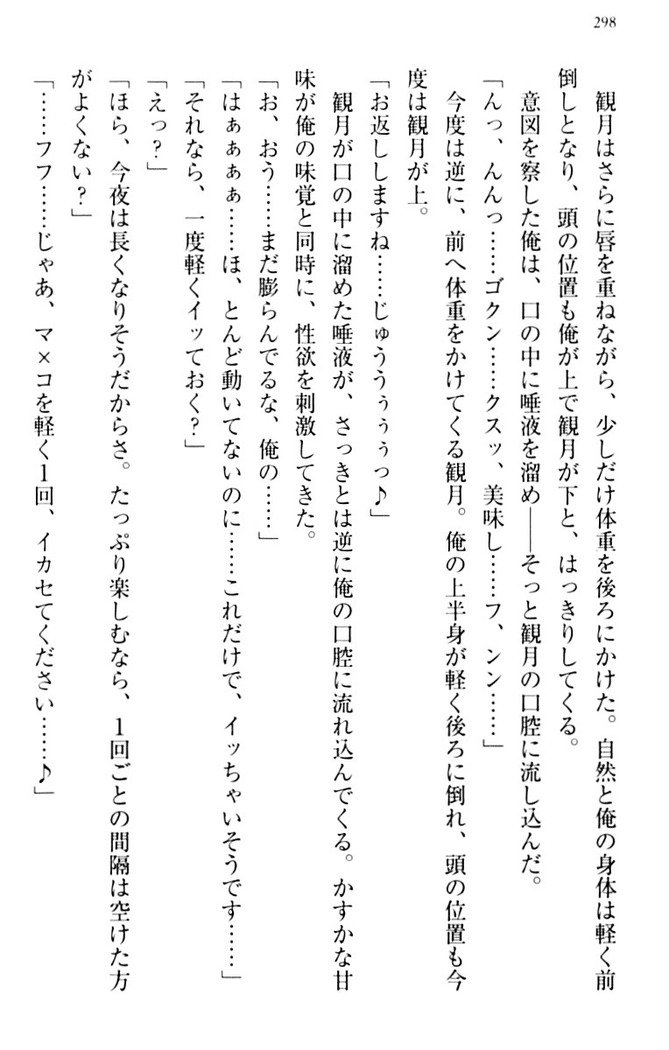 298
　観月はさらに唇を重ねながら、少しだけ体重を後ろにかけた。自然と俺の身体は軽く前
倒しとなり、頭の位置も俺が上で観月が下と、はっきりしてくる。
　意図を察した俺は、口の中に唾液を溜め――そっと観月の口腔に流し込んだ。
「んっ、んんっ……ゴクン……クスッ、美味し……フ、ンン……」
　今度は逆に、前へ体重をかけてくる観月。俺の上半身が軽く後ろに倒れ、頭の位置も今
度は観月が上。
「お返ししますね……じゅううぅぅぅっ♪」
　観月が口の中に溜めた唾液が、さっきとは逆に俺の口腔に流れ込んでくる。かすかな甘
味が俺の味覚と同時に、性欲を刺激してきた。
「お、おう……まだ膨らんでるな、俺の……」
「はぁぁぁぁ……ほ、とんど動いてないのに……これだけで、イッちゃいそうです……」
「それなら、一度軽くイッておく？」
「えっ？」
「ほら、今夜は長くなりそうだからさ。たっぷり楽しむなら、1回ごとの間隔は空けた方
がよくない？」
「……フフ……じゃあ、マ×コを軽く1回、イカせてください……♪」